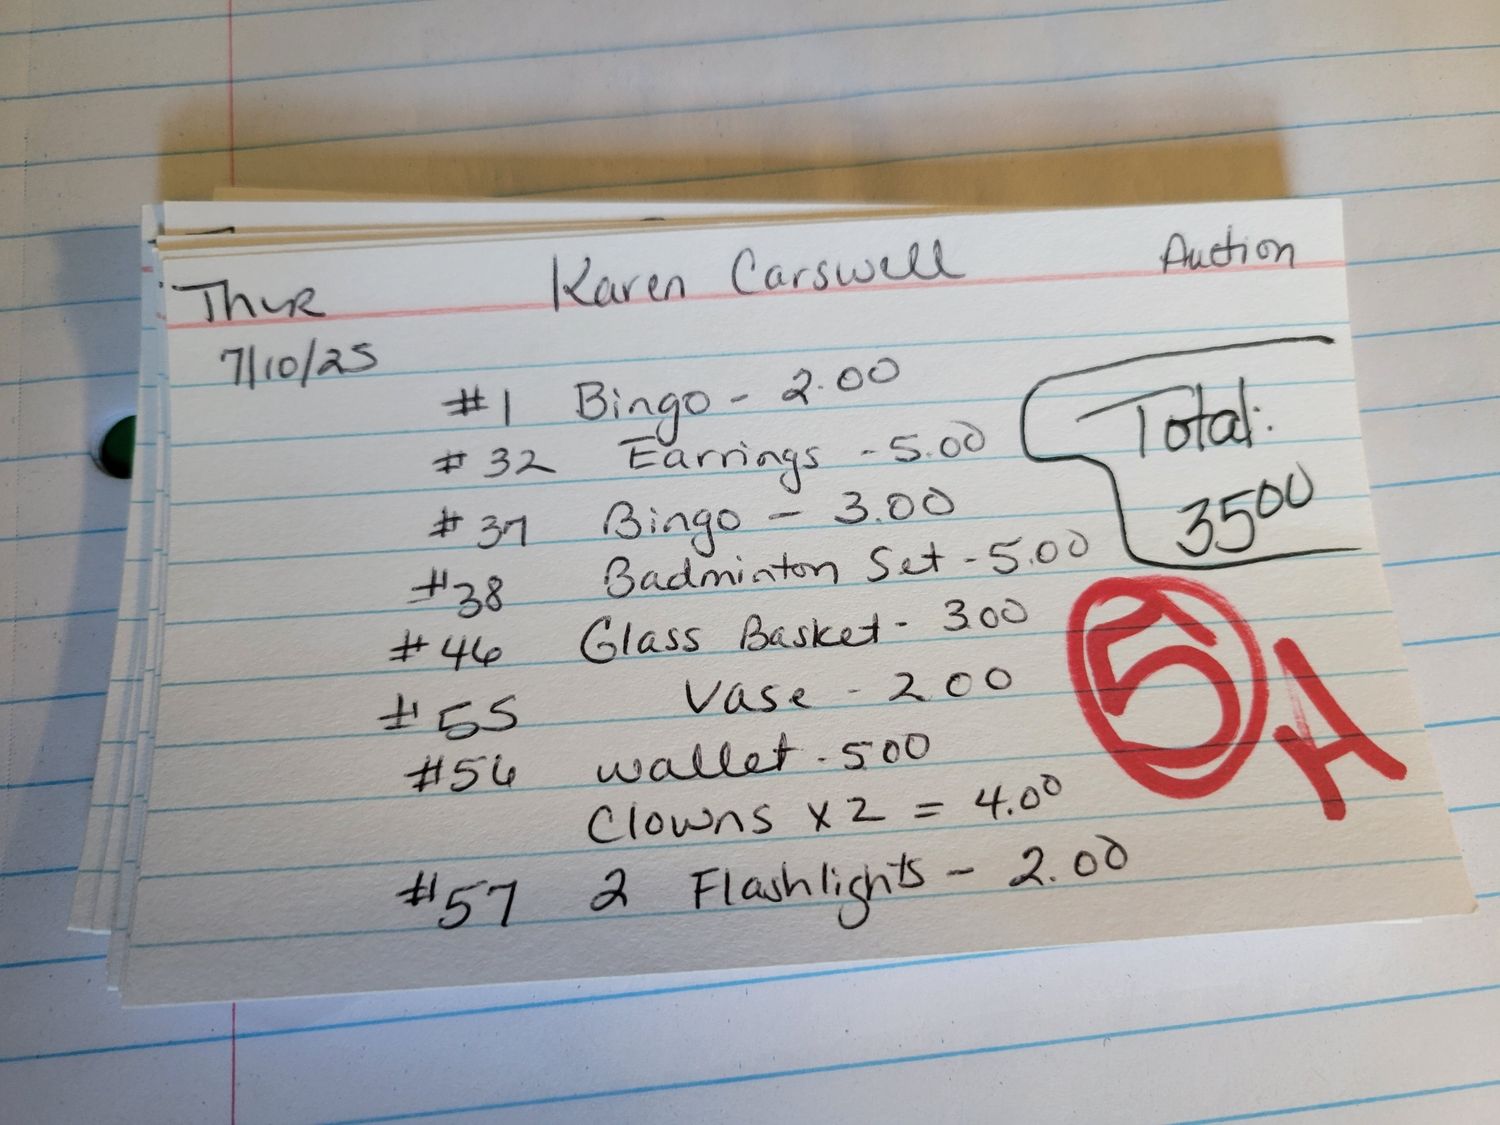 Thur Karen Carswell Auction
7/10/25
#1 Bingo - 2.00
#32 Earrings - 5.00
#37 Bingo - 3.00
#38 Badminton Set - 5.00
#46 Glass Basket - 300
#55 Vase - 200
#56 wallet - 500
Clowns x 2 = 4.00
#57 2 Flashlights - 2.00
Total:
3500
5A